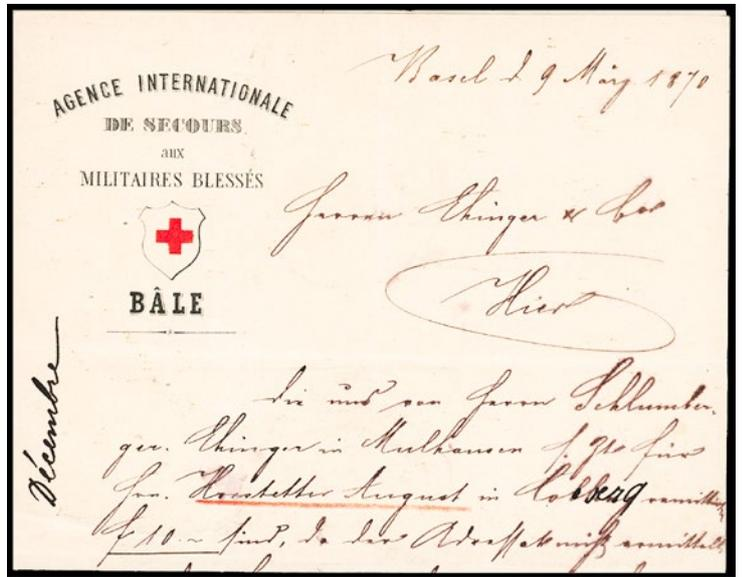 AGENCE INTERNATIONALE
DE SECOURS
aux
MILITAIRES BLESSÉS
BÂLE
Basel d 9 März 1870
Herren Ehinger & Co
Hier
Décembre
die uns von Herrn Schlumber-
ger. Ehinger in Mulhausen für
Hrn. Hofstetter August in
f 10.~ sind, da der Adressat nicht ermittelt